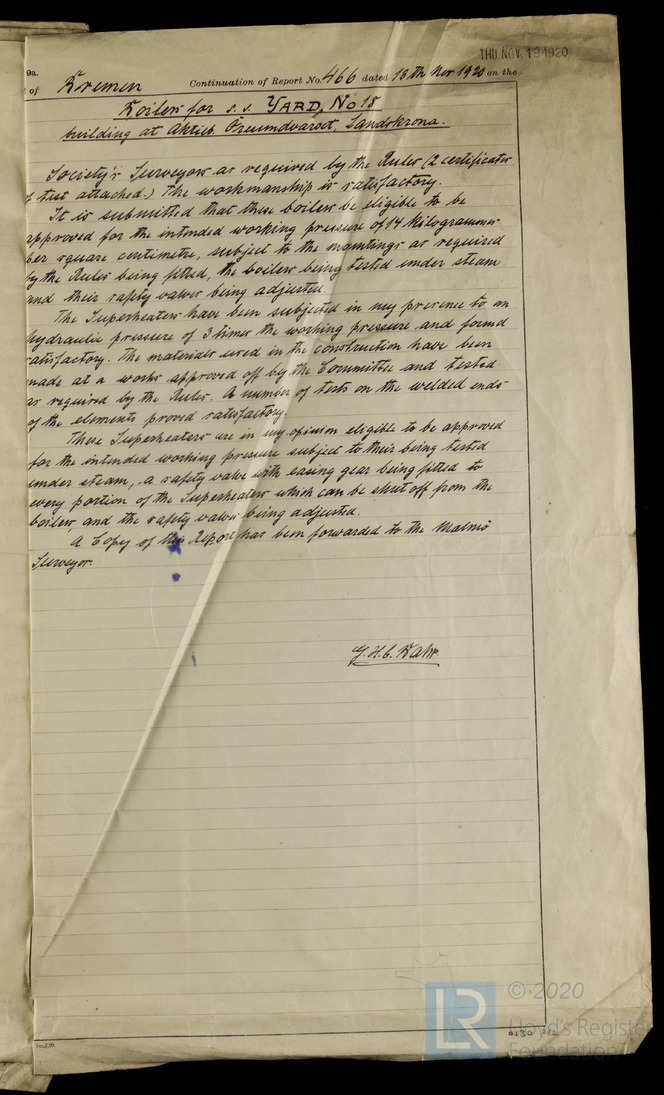 THU. NOV. 18 1920
9a.
of Bremen Continuation of Report No. 466 dated 13th Nov 1920 on the
Boilers for s.s. YARD, No 18
building at Aktieb. Öresundvarvet, Landskrona.
Society's Surveyors as required by the Rules (2 certificates
of test attached.) The workmanship is satisfactory.
It is submitted that these boilers be eligible to be
approved for the intended working pressure of 14 Kilogrammes
per square centimetre, subject to the mountings as required
by the Rules being fitted, the boilers being tested under steam
and their safety valves being adjusted.
The Superheaters have been subjected in my presence to an
hydraulic pressure of 3 times the working pressure and found
satisfactory. The materials used in the construction have been
made at a works approved off by the Committee and tested
as required by the Rules. A number of tests on the welded ends
of the elements proved satisfactory.
These Superheaters are in my opinion eligible to be approved
for the intended working pressure subject to their being tested
under steam, a safety valve with easing gear being fitted to
every portion of the Superheaters which can be shut off from the
boilers, and the safety valves being adjusted.
A Copy of this Report has been forwarded to the Malmö
Surveyor.
© 2020
Lloyd's Register
Foundation